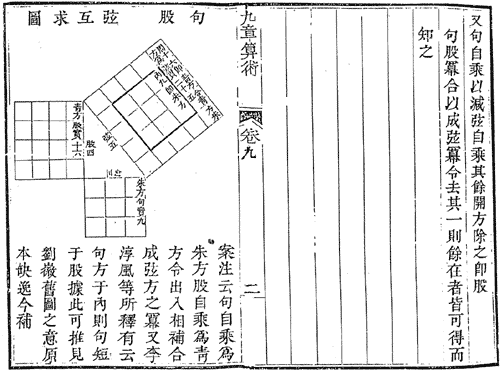 又句自乘以減弦自乘其餘開方除之卽股
句股冪合以成弦冪令去其一則餘在者皆可得而
知之
九章算術
卷九
二
句股弦互求圖
弦五
股四
句三
靑方股實十六
朱方句實九
案注云句自乘爲
朱方股自乘爲靑
方令出入相補合
成弦方之冪又李
淳風等所釋有云
句方于內則句短
于股據此可推見
劉徽舊圖之意原
本缺逸今補